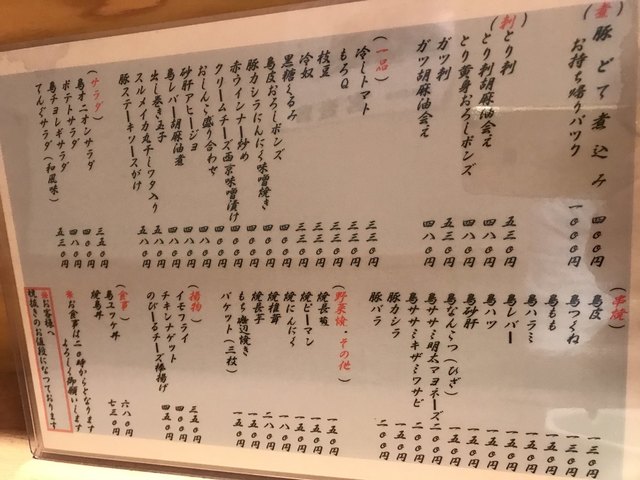 (煮)
豚どて煮込み 四〇〇円
お持ち帰りパック 一〇〇〇円
(刺)
とり刺 五三〇円
とり刺胡麻油会え 四八〇円
とり黄身おろしポンズ 四八〇円
ガツ刺 五三〇円
ガツ胡麻油会え 四八〇円
(一品)
冷しトマト 三三〇円
もろQ 三三〇円
枝豆 三三〇円
冷奴 三三〇円
黒糖くるみ 三三〇円
鳥皮おろしポンズ 四〇〇円
豚カシラにんにく味噌焼き 四〇〇円
赤ウインナー炒め 四〇〇円
クリームチーズ西京味噌漬け 四〇〇円
おしんこ盛り合わせ 四〇〇円
砂肝アヒージョ 四八〇円
鳥レバー胡麻油煮 四八〇円
出し巻き玉子 四八〇円
スルメイカ丸干しワタ入り 五八〇円
豚ステーキソースがけ 五八〇円
(サラダ)
鳥オニオンサラダ 三五〇円
ポテトサラダ 四〇〇円
鳥チョレギサラダ 四八〇円
てんぐサラダ(和風味) 五三〇円
(串焼)
鳥皮 一三〇円
鳥つくね 一三〇円
鳥もも 一五〇円
鳥ハラミ 一五〇円
鳥レバー 一五〇円
鳥ハツ 一五〇円
鳥砂肝 一五〇円
鳥なんこつ(ひざ) 一五〇円
鳥ササミ明太マヨネーズ 二〇〇円
鳥ササミキザミワサビ 二〇〇円
豚カシラ 一五〇円
豚バラ 二〇〇円
(野菜焼・その他)
焼長葱 一五〇円
焼ピーマン 一五〇円
焼にんにく 一八〇円
焼椎茸 二八〇円
焼長芋 一五〇円
もち磯辺焼き 一五〇円
バケット(三枚) 一五〇円
(揚物)
イモフライ 三五〇円
チキンナゲット 四〇〇円
のびーるチーズ棒揚げ 四五〇円
(食事)
鳥ユッケ丼 六八〇円
焼鳥丼 七三〇円
※お食事は二〇時からとなります
よろしく御願いします
※お客様へ
税抜きのお値段になっております